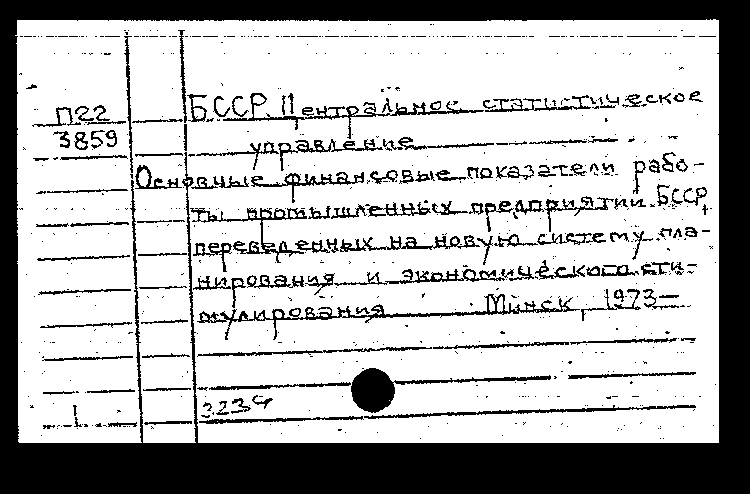 П22
3859
БССР. Центральное статистическое
управление
Основные финансовые показатели рабо-
ты промышленных предприятий БССР,
переведенных на новую систему пла-
нирования и экономического сти-
мулирования Минск, 1973—
1
3234